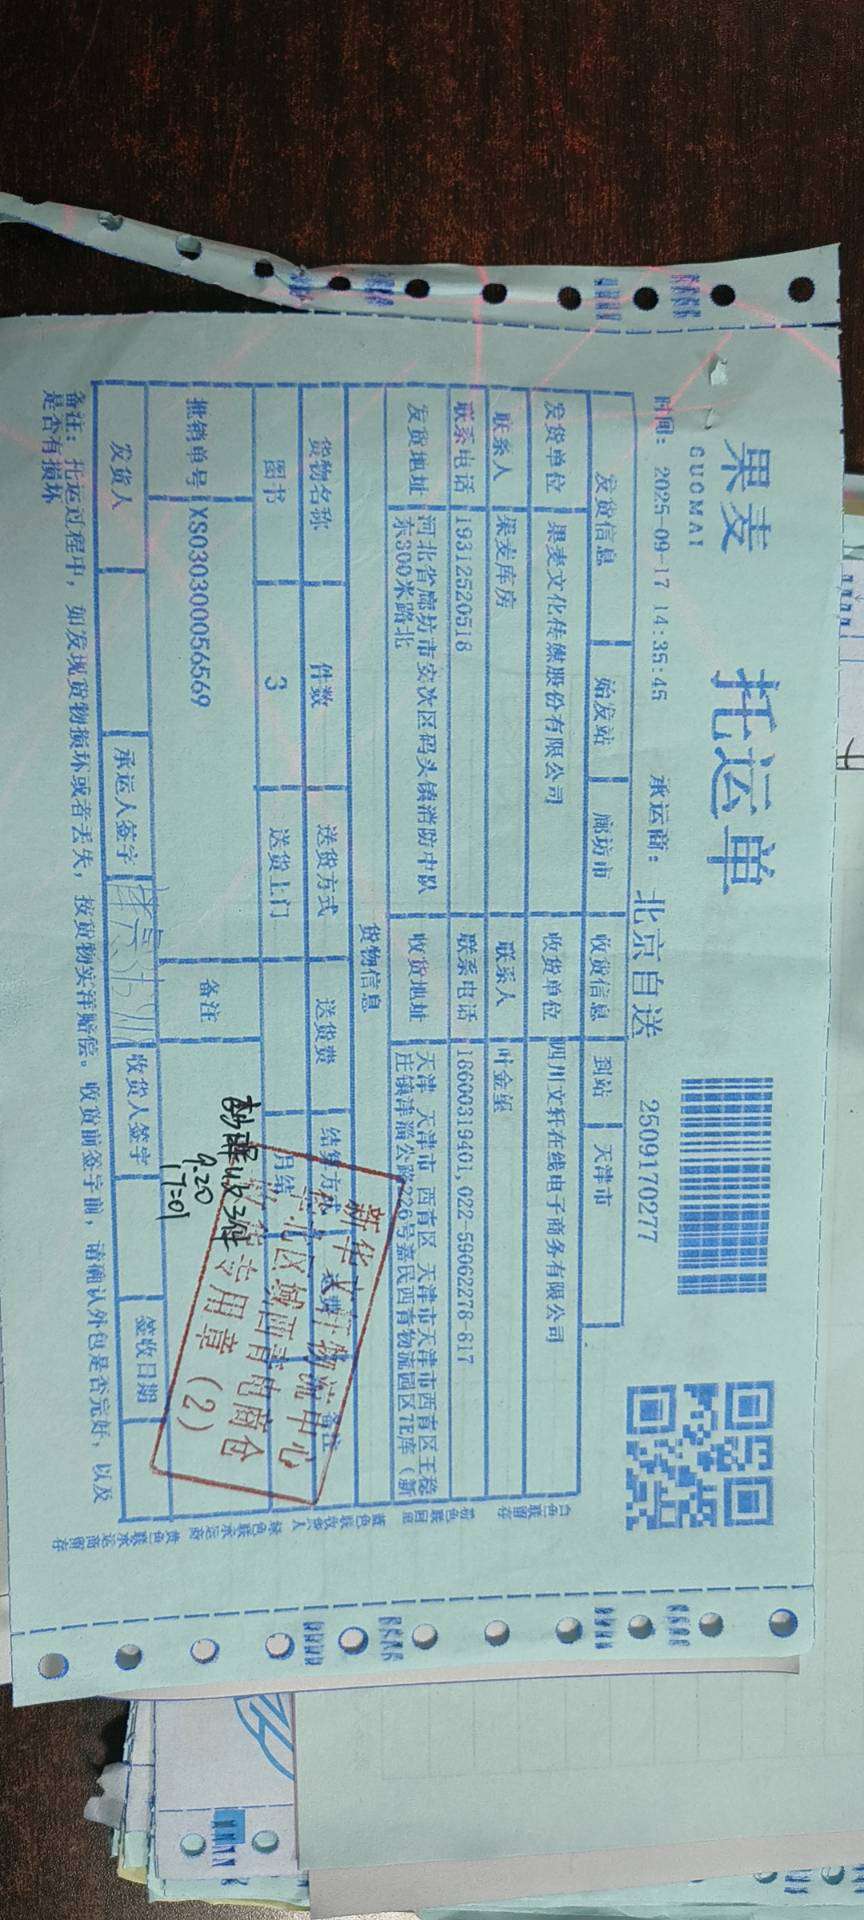 果麦
GUOMAI
托运单
时间: 2025-09-17 14:35:45 承运商: 北京自送 2509170277
发货信息 始发站 廊坊市 收货信息 到站 天津市
发货单位 果麦文化传媒股份有限公司 收货单位 四川文轩在线电子商务有限公司
联系人 果麦库房 联系人 叶金铎
联系电话 19312520518 联系电话 18600319401,022-59062278-817
发货地址 河北省廊坊市安次区码头镇消防中队
东800米路北
收货地址 天津 天津市 西青区 天津市天津市西青区王稳
庄镇津淄公路226号嘉民西青物流园区7E库(新
货物信息
货物名称 件数 送货方式 送货费 结算方式 备注
图书 3 送货上门 月结
推销单号 XS030300056569 备注
收三件
9.20
17:01
新华文轩物流中心
华北区域西青电商仓
收货专用章 (2)
发货人 承运人签字 收货人签字 签收日期
备注: 托运过程中, 如发现货物损坏或者丢失, 按货物实洋赔偿。收货前签字前, 请确认外包是否完好, 以及
是否有损坏
白色联留存 粉色联回单 蓝色联收货人 绿色联承运商 黄色联承运商留存